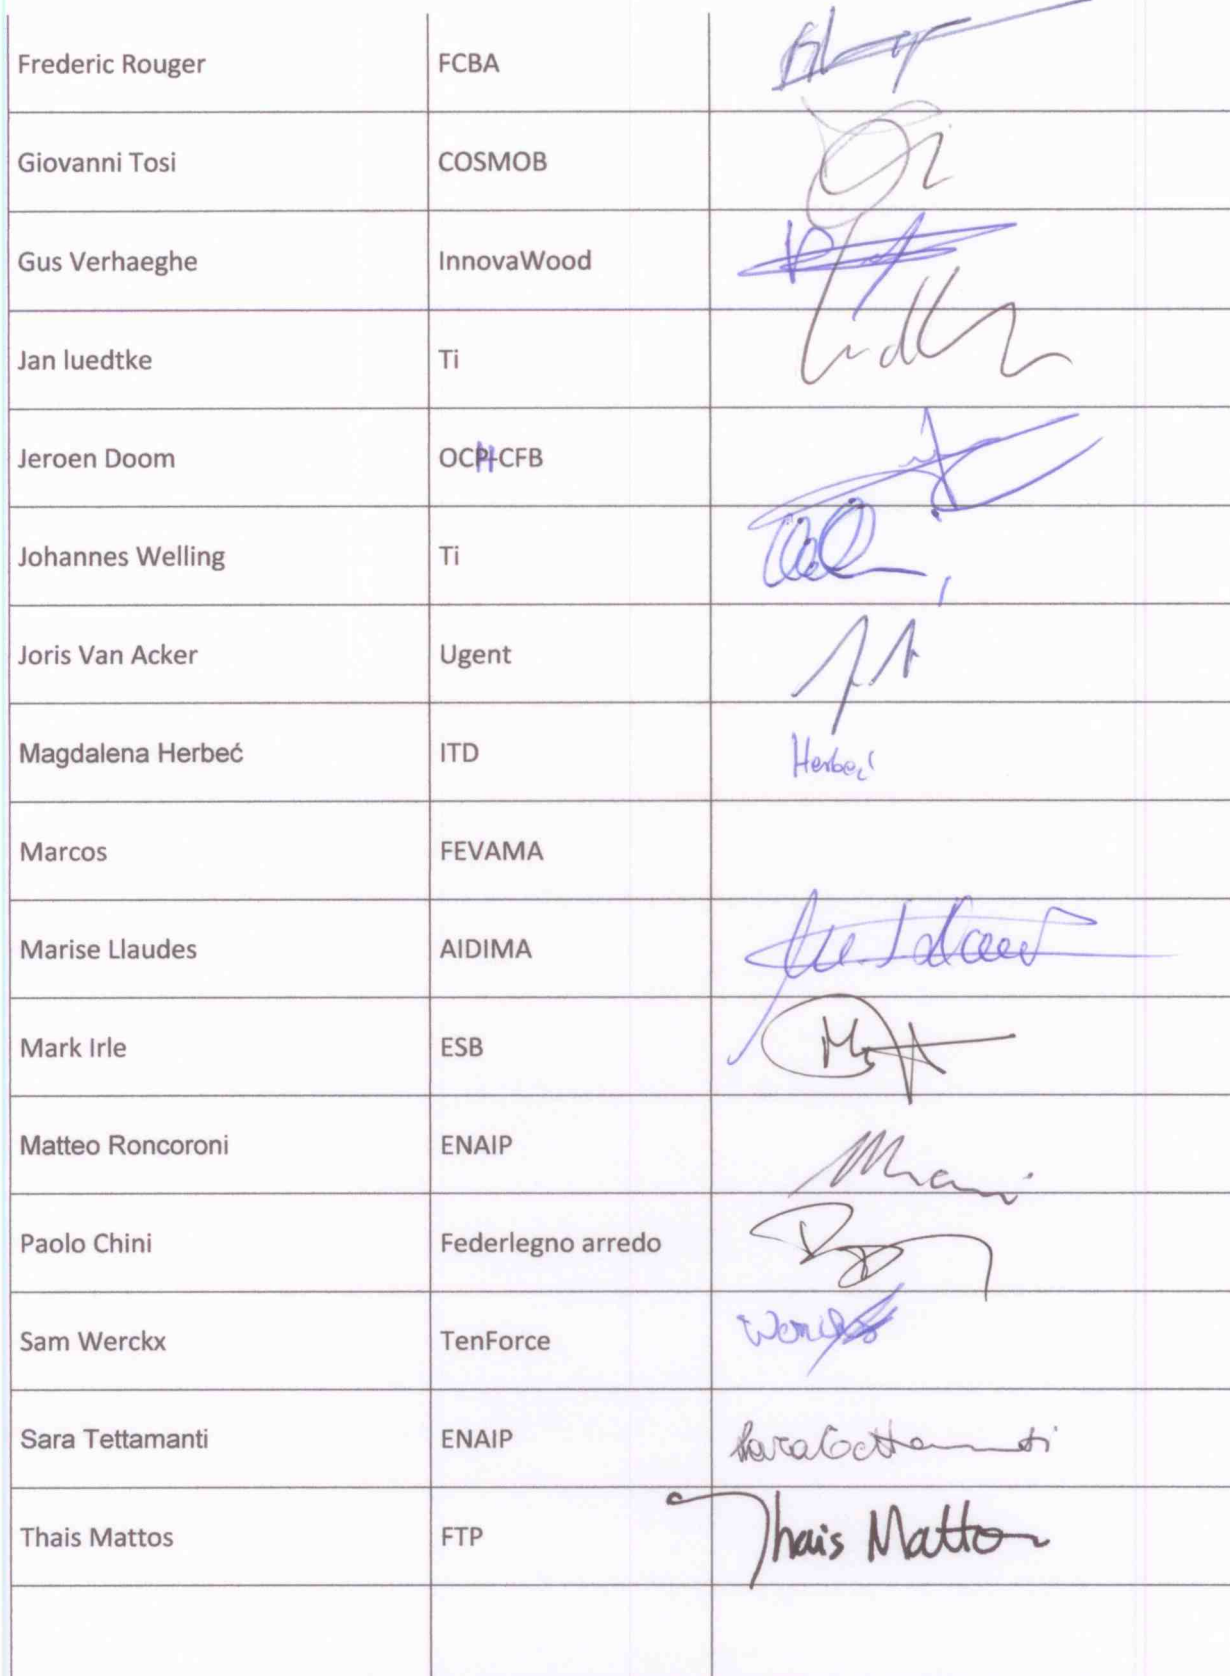 Frederic Rouger FCBA
Giovanni Tosi COSMOB
Gus Verhaeghe InnovaWood
Jan luedtke Ti
Jeroen Doom OCH-CFB
Johannes Welling Ti
Joris Van Acker Ugent
Magdalena Herbeć ITD Herbeć
Marcos FEVAMA
Marise Llaudes AIDIMA
Mark Irle ESB
Matteo Roncoroni ENAIP
Paolo Chini Federlegno arredo
Sam Werckx TenForce
Sara Tettamanti ENAIP Sara Tettamanti
Thais Mattos FTP Thais Mattos